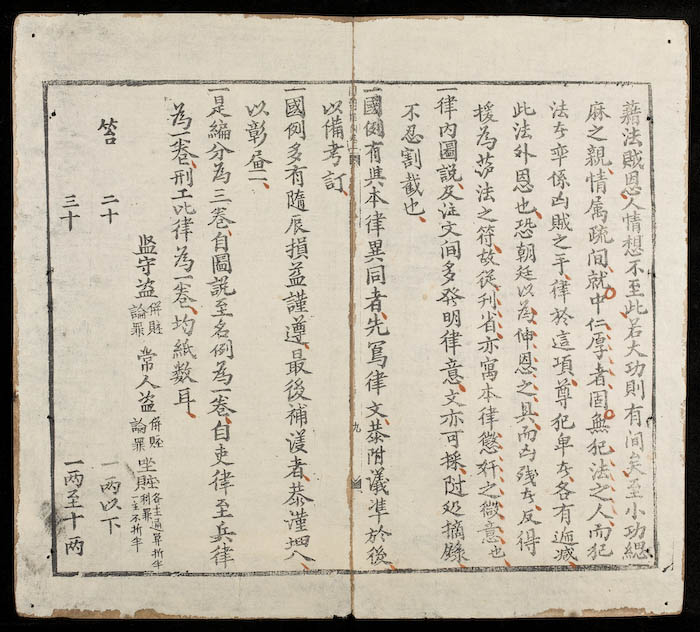 藉法賊恩人情想不至此若大功則有間矣至小功緦
麻之親情属疏间就中仁厚者固無犯法之人而犯
法者率係凶賊之手律於這項尊犯卑者各有逓减
此法外恩也恐朝廷以為伸恩之具而凶残者反得
援為䒢法之符故從刋省亦寓本律懲奸之微意也
一律内圖説及注文间多發明律意文亦可採附処摘錄
不忍割截也
一國例有與本律異同者先写律文恭附議準於後
以備考訂
一國例多有隨辰損益謹遵最後補䕶者恭謹
以彰益二
一是編分為三卷自圖説至名例為一卷自吏律至兵律
為一卷刑工比律為一卷均紙数耳
笞 二十 三十
监守盗 併賍論罪 常人盗 併賍論罪 坐賍 各主通算折半
一兩以下 一兩至十兩
九